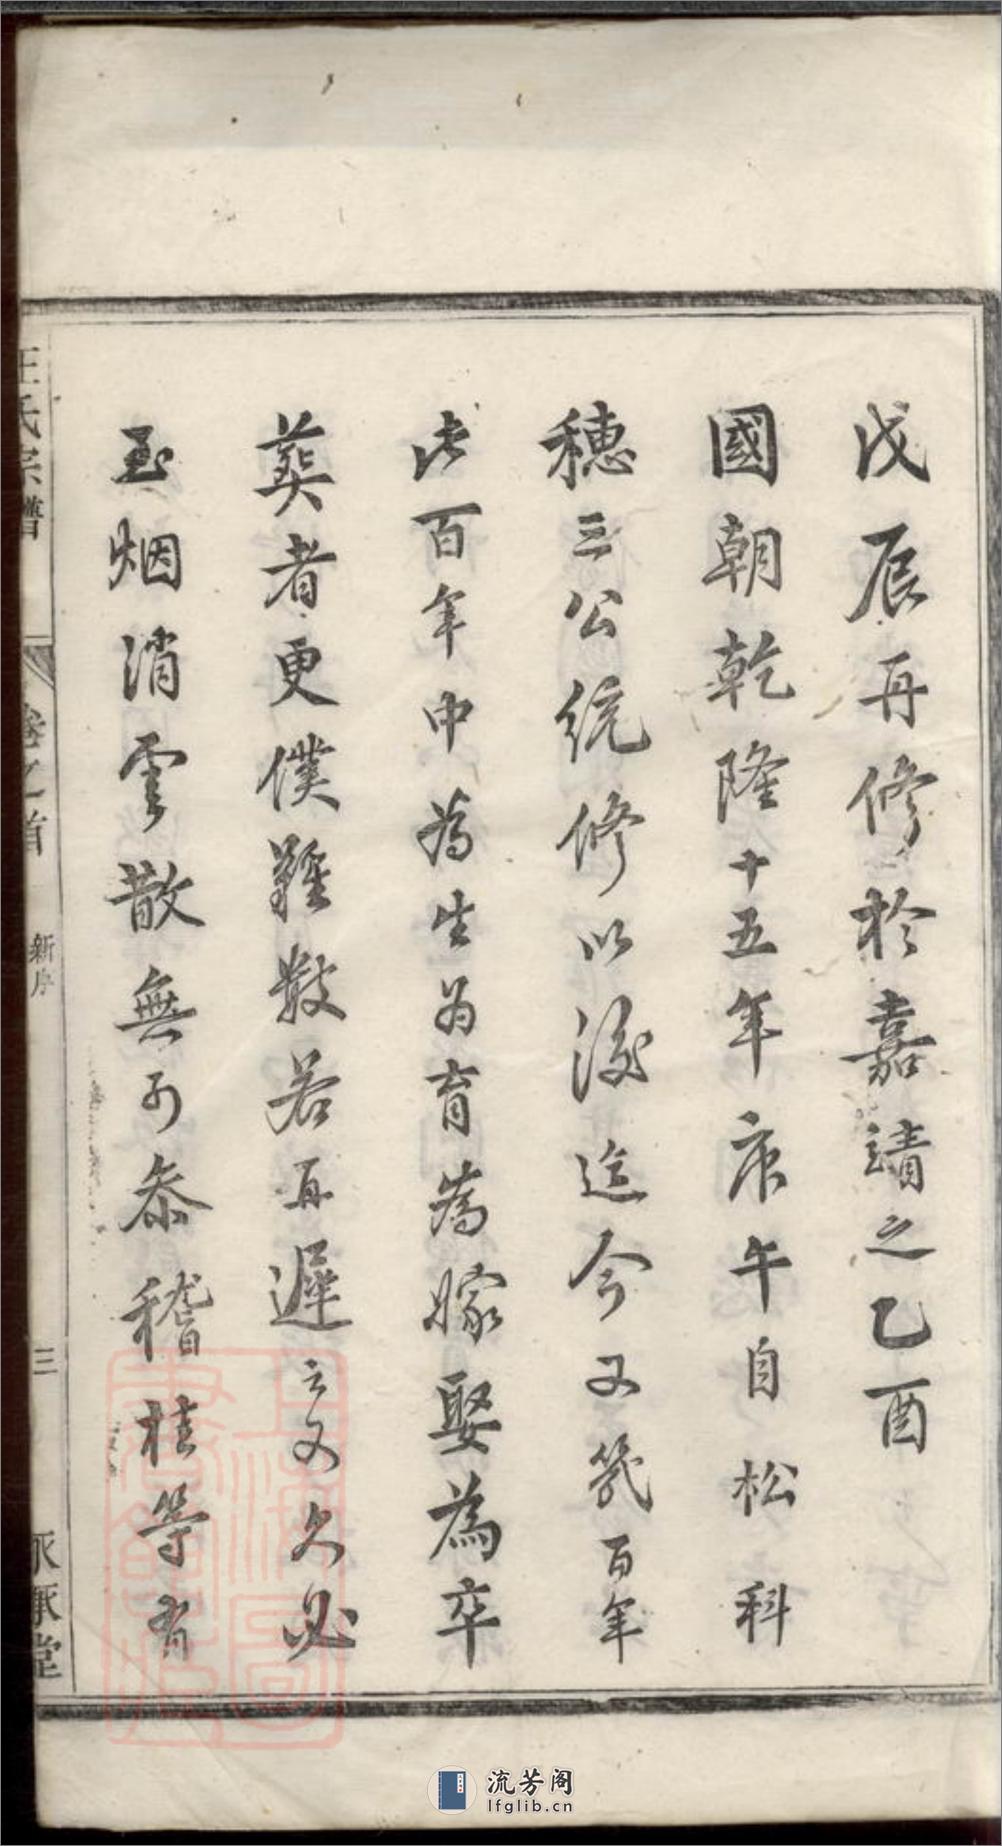 戊辰再修於嘉靖之乙酉
國朝乾隆十五年庚午自松科
穗三公統修以後迄今又幾百年
此百年中為生為育為嫁娶為卒
葬者更僕難數若再遲之又久必
至烟消雲散無可叅稽桂等有
王氏宗譜
卷之首
新序
三
承堂
流芳阁
lfglib.cn